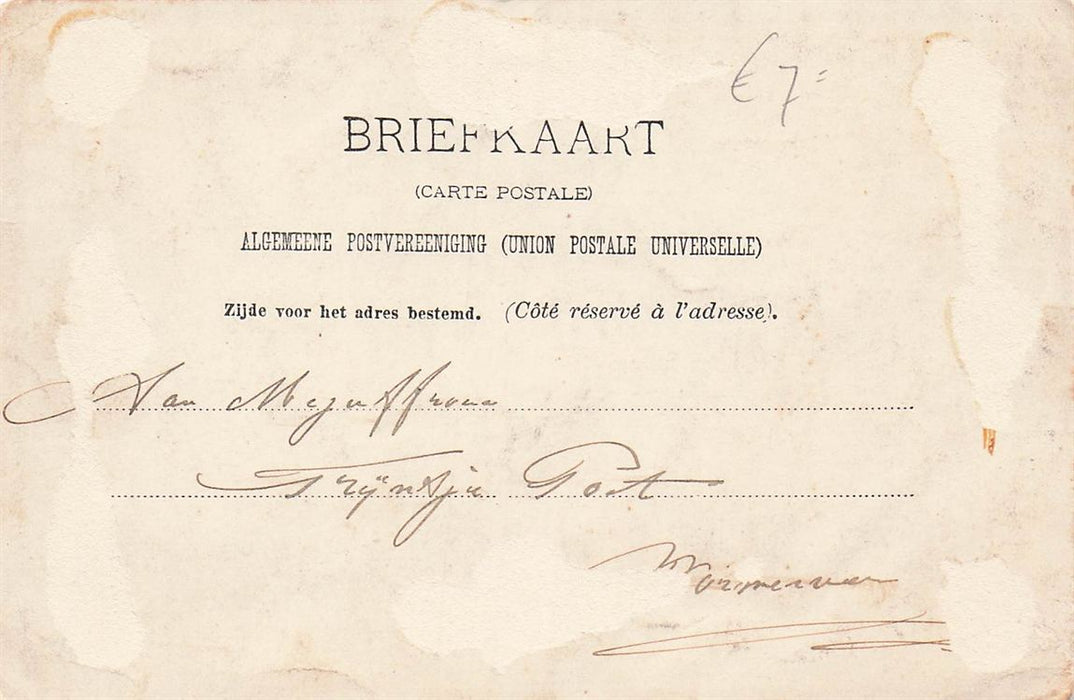 € 7=
BRIEFKAART
(CARTE POSTALE)
ALGEMEENE POSTVEREENIGING (UNION POSTALE UNIVERSELLE)
Zijde voor het adres bestemd. (Côté réservé à l'adresse).
Aan Mejuffrouw
Trijntje Post
Wormerveer